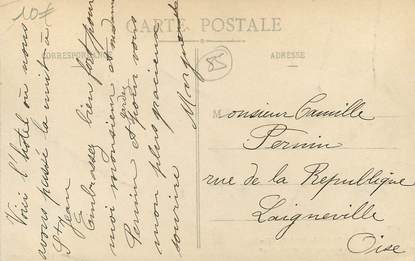 10€
CARTE POSTALE
CORRESPONDANCE
ADRESSE
85
Voici l'hotel où nous
avons passé la nuit à
St Jean
Embrassez bien fort pour
moi Monsieur et Madame
Pernin et gardez pour vous
mon plus gracieux
sourire
Marguerite
Monsieur Camille
Pernin
rue de la République
Laigneville
Oise